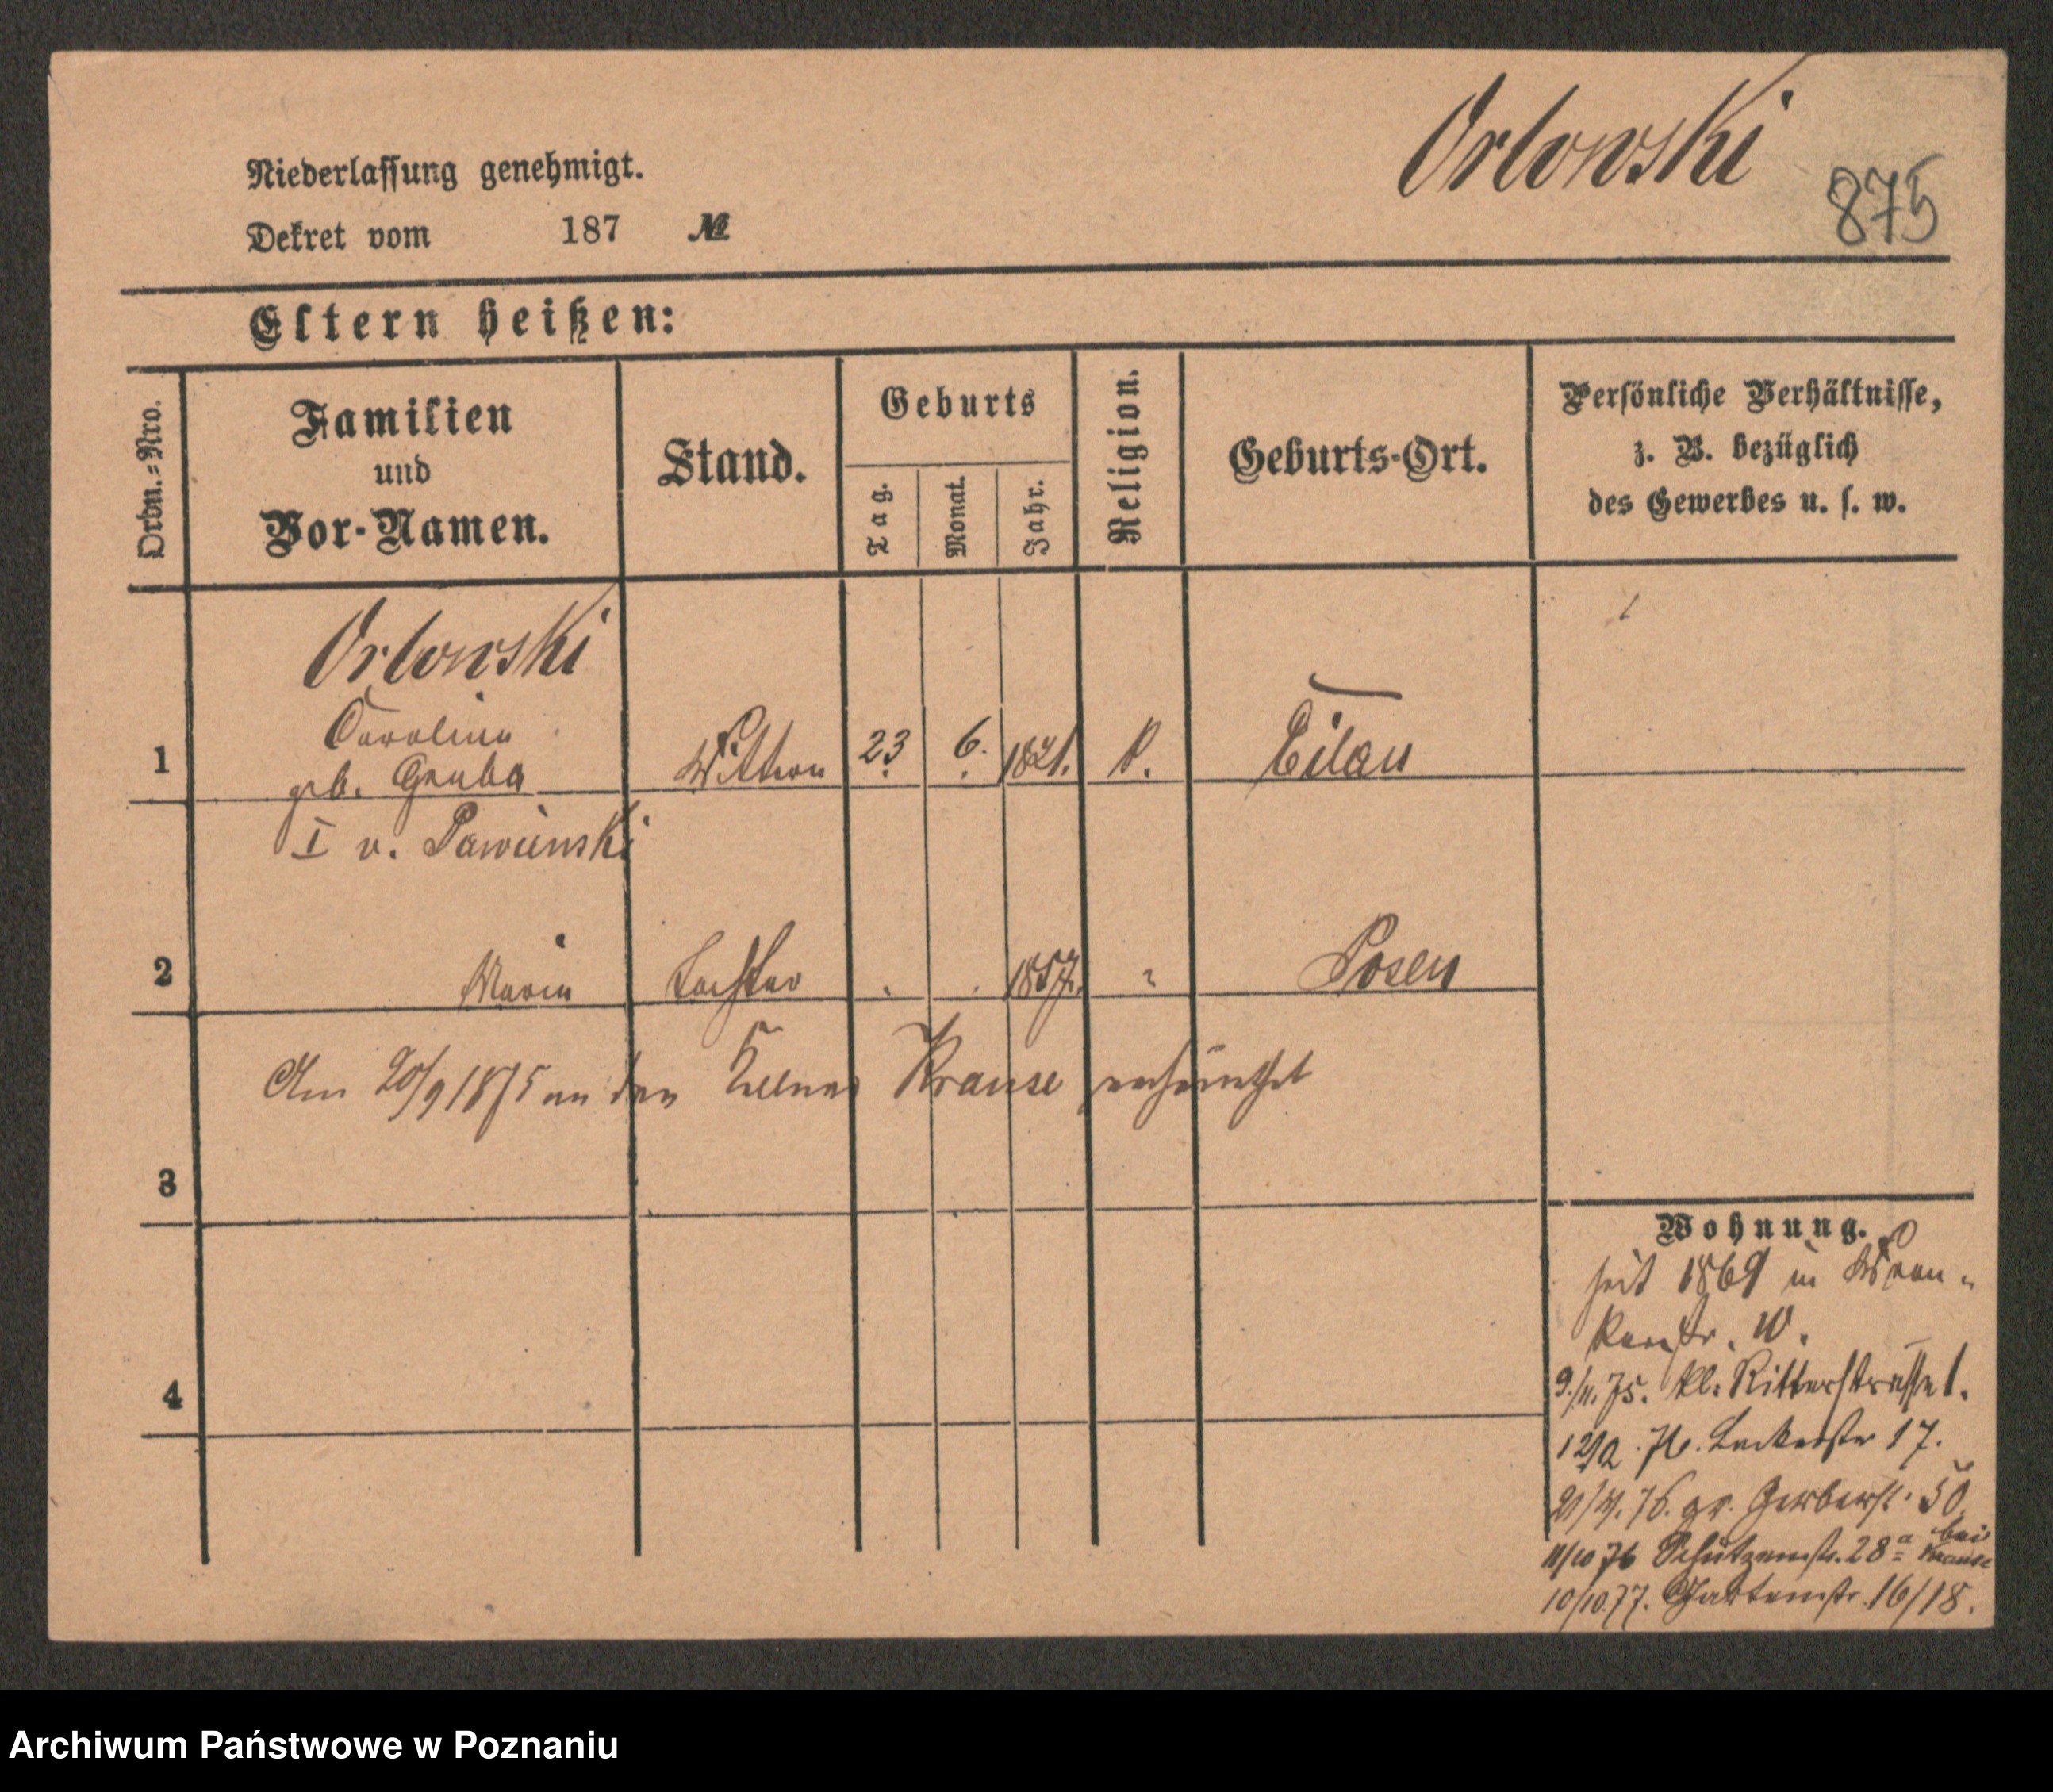 Orlowski
875
Niederlassung genehmigt.
Dekret vom 187 №
Eltern heißen:
Ordn.-Nro.
Familien
und
Vor-Namen.
Stand.
Geburts
Tag.
Monat.
Jahr.
Religion.
Geburts-Ort.
Persönliche Verhältnisse,
z. B. bezüglich
des Gewerbes u. s. w.
Orlowski
Carolina
1 geb. Gruba Wittwe 23. 6. 1821. k. Eilau
I v. Pawinski
2 Maria Tochter 1857. " Posen
Am 20/9 1875 an den Krause verheirathet
3
4
Wohnung.
seit 1869 in Wron-
kerstr. 10.
9./11. 75. kl. Ritterstrasse 1.
76. 17.
76. gr. Gerberst. 50.
11/10 76 Schützenstr. 28a bei Krause
10/10. 77. Gartenstr. 16/18.
Archiwum Państwowe w Poznaniu